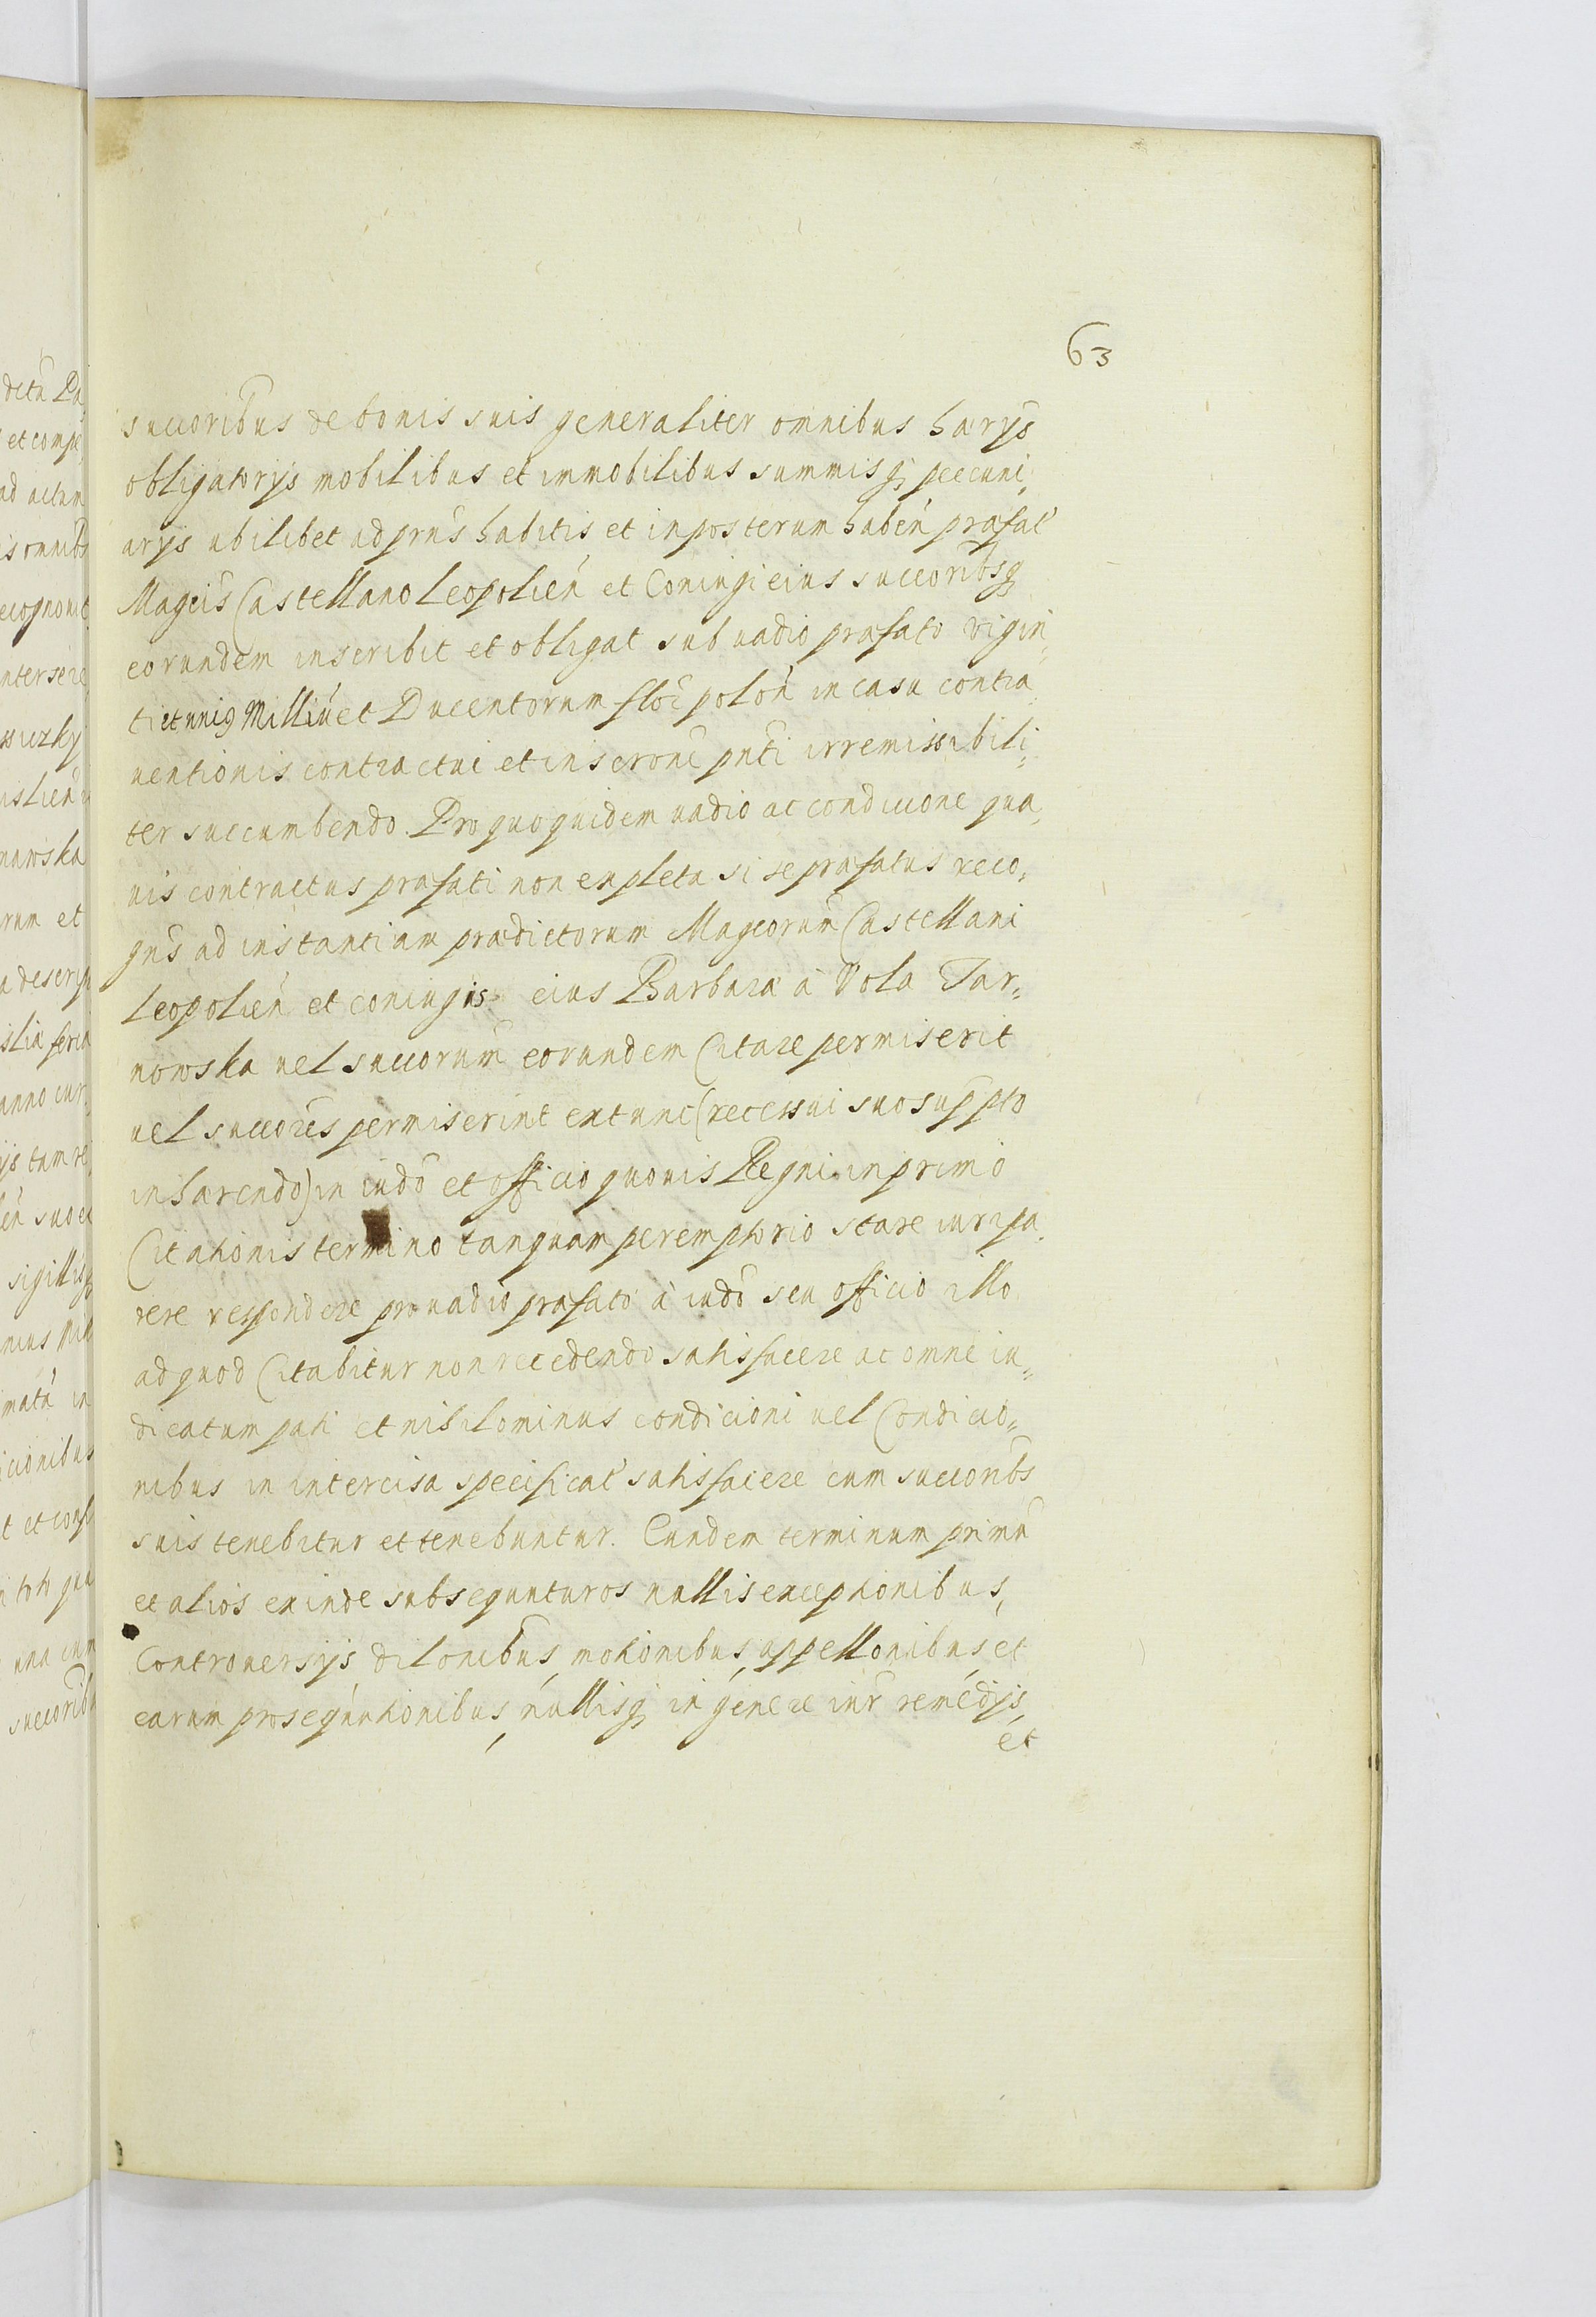 63
succoribus de bonis suis generaliter omnibus hærijs
obligatorijs mobilibus et immobilibus summisq; peccuni,
arijs ubilibet ad prns habitis et in posterum haben præfat
Magcis Castellano Leopolien et Coniugi eius succoribsq
eorundem inscribit et obligat sub vadio præfato vigin,
ti et unig Milliu et Ducentorum flor polon in casu contra
uentionis contractui et inscroni pnti irremissibili,
ter succumbendo. Pro quo quidem uadio ac condicione qua,
uis contractus præfati non expleta si se præfatus reco,
gns ad instantiam prædictorum Magcorum Castellani
Leopolien et coniugis eius Barbaræ à Vola Tar,,
nowska uel succorum eorundem Citare permiserit
uel succores permiserint extunc (recessui suo suppto
inhærendo) in iudo et officio quouis Regni in primo
Citationis termino tanquam peremptorio stare iuri pa,
rere respondere pro uadio præfato à iudo seu officio illo
ad quod Citabitur non recedendo satisfacere ac omne iu,,
dicatum pati et nihilominus condicioni uel Condicio,,
nibus in intercisa specificat satisfacere cum succoribs
suis tenebitur et tenebuntur. Eundem terminum primu
et alios exinde subsequuturos nullis exceptionibus,
Controuersijs dilonibus, motionibus, appellonibus, et
earum prosequutionibus, nullisq; in genere iur remedijs,
et